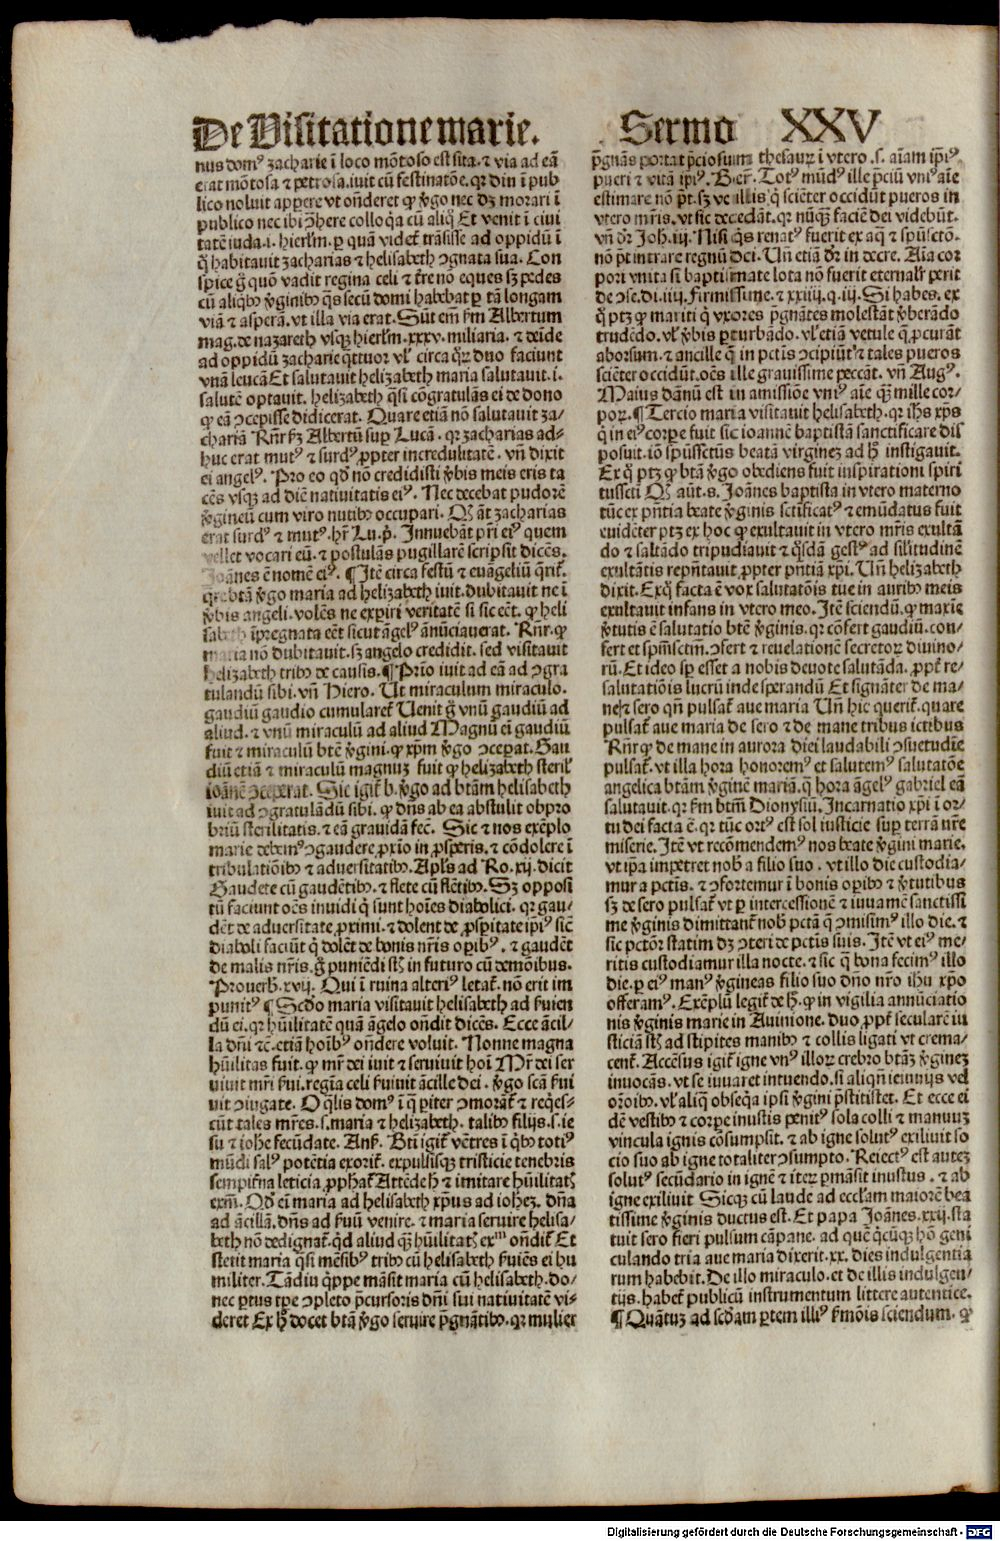 De Visitatione marie.
nus domꝰ zacharie ī loco mōtoso est sita. ⁊ via ad eā
erat mōtosa ⁊ petrosa. iuit cū festinatōe. qꝛ diu ī pub
lico noluit apꝑere vt onderet ꝙ v̄go nec dꝫ morari ī
publico nec ibi ꝯhere colloq̄a cū aliq̄ Et venit ī ciui
tatē iuda .i. hierlm̄. ꝑ quā videt᷑ trāsisse ad oppidū ī
q̄ habitauit zacharias ⁊ helisabeth ꝯgnata sua. Con
spice g̊ quō vadit regina celi ⁊ t̄re nō eques sꝫ pedes
cū aliq̄bꝫ v̄ginibꝫ q̄s secū domi habebat ꝑ tā longam
viā ⁊ asperā. vt illa via erat. Sūt em̄ ẜm Albertum
mag. de nazareth vsqꝫ hierlm̄. xxxv. miliaria. ⁊ deīde
ad oppidū zacharie q̄ttuor vł circa q̄ꝝ duo faciunt
vnā leucā Et salutauit helizabeth maria salutauit .i.
salutē optauit. helizabeth q̄si cōgratulās ei de dono
ꝙ eā ꝯcepisse didicerat. Quare etiā nō salutauit za/
chariā Rn̄r ẜꝫ Albertū suꝑ Lucā. qꝛ zacharias ad-
huc erat mutꝰ ⁊ surdꝰ ꝓpter incredulitatē. vn̄ dixit
ei angelꝰ. Pro eo qd̄ nō credidisti v̄bis meis eris ta
cēs vsqꝫ ad diē natiuitatis eiꝰ. Nec decebat pudorē
v̄gineū cum viro nutibꝫ occupari. Qꝫ āt zacharias
erat surdꝰ ⁊ mutꝰ. hr̄ Lu. p̊. Innuebāt pr̄i eiꝰ quem
vellet vocari eū. ⁊ postulās pugillarē scripsit dicēs.
Ioānes ē nomē eiꝰ. ¶ Itē circa festū ⁊ euāgeliū q̄rit᷑.
qre btā v̄go maria ad helizabeth iuit. dubitauit ne ī
v̄bis angeli. volēs ne exꝑiri veritatē si sic eēt. ꝙ heli
sabeth īpregnata eēt sicut āgelꝰ ānūciauerat. Rn̄r. ꝙ
maria nō dubitauit. sꝫ angelo credidit. sed visitauit
helizabeth tribꝫ de causis. ¶ Prīo iuit ad eā ad ꝯgra
tulandū sibi. vn̄ Hiero. Ut miraculum miraculo.
gaudiū gaudio cumularet᷑ Uenit g̊ vnū gaudiū ad
aliud. ⁊ vnū miraculū ad aliud Magnū eī gaudiū
fuit ⁊ miraculū btē v̄gini. ꝙ xp̄m v̄go ꝯceꝑat. Gau
diū etiā ⁊ miraculū magnuꝫ fuit ꝙ helizabeth sterił
ioānē ꝯceperat. Sic igit᷑ b. v̄go ad btām helisabeth
iuit ad ꝯgratulādū sibi. ꝙ dn̄s ab ea abstulit obpro
briū sterilitatis. ⁊ eā grauidā fec̄. Sic ⁊ nos exēplo
marie debemꝰ ꝯgaudere ꝓxīo in ꝓsperis. ⁊ cōdolere ī
tribulatiōibꝫ ⁊ aduersitatibꝫ. Apl̄s ad Ro. xij. dicit
Gaudete cū gaudētibꝫ. ⁊ flete cū flētibꝫ. Sꝫ opposi
tū faciunt oēs inuidi q̄ sunt hoīes diabolici. qꝛ gau/
dēt de aduersitate ꝓximi. ⁊ dolent de ꝓsꝑitate ip̄iꝰ sic̄
diaboli faciūt q̄ dolēt de bonis nr̄is oꝑibꝰ. ⁊ gaudēt
de malis nr̄is. g̊ puniēdi st̄ in futuro cū demōibus.
Prouerb. xvij. Qui ī ruina alteriꝰ letat᷑. nō erit im
punitꝰ ¶ Scd̄o maria visitauit helisabeth ad ẜuien
dū ei. qꝛ hūilitatē quā āgelo on̄dit dicēs. Ecce ācil/
la dn̄i ⁊c̄. etiā hoībꝫ on̄dere voluit. Nonne magna
hūilitas fuit. ꝙ mr̄ dei iuit ⁊ seruiuit hoī Mr̄ dei ser
uiuit mr̄i ẜui. regīa celi ẜuiuit ācille dei. v̄go scā ẜui
uit ꝯiugate. O q̄lis domꝰ ī q̄ ꝑiter ꝯmorāt᷑ ⁊ reqēs-
cūt tales mr̄es. s. maria ⁊ helizabeth. talibꝫ filijs. s. ie
su ⁊ iohe fecūdate. Anẜ. Bti igit᷑ vētres ī q̄bꝫ totiꝰ
mūdi salꝰ potētia exorit᷑. expulsisqꝫ tristicie tenebris
sempit᷑na leticia ꝓphat᷑ Attēde h̄ ⁊ imitare hūilitat᷑
exm̄. Qd̄ eī maria ad helisabeth xp̄us ad iohēꝫ. dn̄a
ad ācillā. dn̄s ad ẜuū venire. ⁊ maria seruire helisa/
beth nō dedignat᷑. qd̄ aliud qꝫ hūilitat᷑ exᵐ on̄dit᷑ Et
stetit maria q̄si mēsibꝫ tribꝫ cū helisabeth ẜuiēs ei hu
militer. Tādiu q̄ppe māsit maria cū helisabeth. do/
nec ꝑtus tꝑe ꝯpleto p̄cursoris dn̄i sui natiuitatē vi/
deret Ex h̄ docet btā v̄go seruire p̄gnātibꝫ. qꝛ mulier
Sermo XXV
p̄gnās portat p̄ciosum thesauꝝ ī vtero. s. aīam ip̄iꝰ
pueri ⁊ vitā ip̄iꝰ. Ber̄. Totꝰ mūdꝰ ille p̄ciū vniꝰ aīe
estimare nō pt̄. sꝫ ve illis q̄ sciēter occidūt pueros in
vtero mr̄is. vt sic decedāt. qꝛ nūqꝫ faciē dei videbūt.
vn̄ dr̄ Joh. iij. Nisi q̄s renatꝰ fuerit ex aq̄ ⁊ spūsctō.
nō pt̄ intrare regnū dei. Un̄ etiā dr̄ in decre. Aīa cor
pori vnita si baptismate lota nō fuerit eternalr̄ perit
de ꝯse. di. iiij. Firmissime. ⁊ xxiiij. q. iij. Si habes. ex
q̄ ptꝫ ꝙ mariti q̄ vxores p̄gnātes molestāt v̄berādo
trudēdo. vł v̄bis ꝑturbādo. vł etiā vetule q̄ ꝓcurāt
aborsum. ⁊ ancille q̄ in pctīs ꝯcipiūt ⁊ tales pueros
sciēter occidūt. oēs ille grauissime peccāt. vn̄ Augꝰ.
Maius dānū est in amissiōe vniꝰ aīe qꝫ mille cor/
poꝝ. ¶ Tercio maria visitauit helisabeth. qꝛ ihs̄ xp̄s
q̄ in eiꝰ corꝑe fuit sic ioannē baptistā sanctificare dis
posuit. iō sp̄ussctūs beatā virgineꝫ ad h̄ instigauit.
Ex q̄ ptꝫ ꝙ btā v̄go obediens fuit inspirationi spiri
tussctī Qꝫ aūt. s. Joānes baptista in vtero materno
tūc ex pn̄tia beate v̄ginis sctīficatꝰ ⁊ emūdatus fuit
euidēter ptꝫ ex hoc ꝙ exultauit in vtero mr̄is exultā
do ⁊ saltādo tripudiauit ⁊ q̄sdā gestꝰ ad silitudinē
exultātis repn̄tauit. ꝓpter pn̄tiā xp̄i. Un̄ helizabeth
dixit. Ex q̄ facta ē vox salutatōis tue in auribꝫ meis
exultauit infans in vtero meo. Itē sciendū. ꝙ maxīe
v̄tutis ē salutatio btē v̄ginis. qꝛ cōfert gaudiū. con/
fert et spm̄sctm̄. ꝯfert ⁊ reuelationē secretoꝝ diuino/
rū. Et ideo sꝑ esset a nobis deuote salutāda. ꝓpt᷑ re/
salutatiōis lucrū inde sperandū Et signāter de ma/
neꝫ sero qn̄ pulsat᷑ aue maria Un̄ hic querit᷑. quare
pulsat᷑ aue maria de sero ⁊ de mane tribus ictibus
Rn̄r ꝙ de mane in aurora diei laudabili ꝯsuetudīe
pulsat᷑. vt illa hora honoremꝰ et salutemꝰ salutatōe
angelica btām v̄ginē mariā. q̄ hora āgelꝰ gabriel eā
salutauit. qꝛ ẜm btm̄ Dionysiū. Incarnatio xp̄i ī or/
tu dei facta ē. qꝛ tūc ortꝰ est sol iusticie suꝑ terrā nr̄e
miserie. Itē vt recōmendemꝰ nos beate v̄gini marie.
vt ip̄a impetret nob̄ a filio suo. vt illo die custodia/
mur a pctīs. ⁊ ꝯfortemur ī bonis oꝑibꝫ ⁊ v̄tutibus
sꝫ de sero pulsat᷑ vt ꝑ intercessionē ⁊ iuuamē sanctissi
me v̄ginis dimittant᷑ nob̄ pctā q̄ ꝯmisimꝰ illo die. ⁊
sic pctōr̄ statim dꝫ ꝯteri de pctīs suis. Itē vt eiꝰ me/
ritis custodiamur illa nocte. ⁊ sic q̄ bona fecimꝰ illo
die. ꝑ eiꝰ manꝰ v̄gineas filio suo dn̄o nr̄o ihū xp̄o
offeramꝰ. Exēplū legit᷑ de h̄. ꝙ in vigilia annūciatio
nis v̄ginis marie in Auinione. duo ꝓpt᷑ secularē iu
sticiā st̄ ad stipites manibꝫ ⁊ collis ligati vt crema/
rent᷑. Accēsus igit᷑ igne vnꝰ illoꝝ crebro btāꝫ v̄gineꝫ
inuocās. vt se iuuaret intuendo. si aliqn̄ ieiunijs vel
orōibꝫ. vł aliq̄ obseq̄a ipsi v̄gini p̄stitisset. Et ecce ei
dē vestibꝫ ⁊ corꝑe inustis penitꝰ sola colli ⁊ manuuꝫ
vincula ignis cōsumpsit. ⁊ ab igne solutꝰ exiliuit so
cio suo ab igne totaliter ꝯsumpto. Reiectꝰ est auteꝫ
solutꝰ secūdario in ignē ⁊ iteꝝ ꝑmāsit inustus. ⁊ ab
igne exiliuit Sicqꝫ cū laude ad eccłam maiorē bea
tissime v̄ginis ductus est. Et papa Joānes. xxij. sta
tuit sero fieri pulsum cāpane. ad quē q̄cūqꝫ hō geni
culando tria aue maria dixerit. xx. dies indulgentia
rum habebit. De illo miraculo. et de illis indulgen/
tijs. habet᷑ publicū instrumentum littere autentice.
¶ Quātuꝫ ad scd̄am ꝑtem illiꝰ ẜmōis sciendum. ꝙ
Digitalisierung gefördert durch die Deutsche Forschungsgemeinschaft - DFG